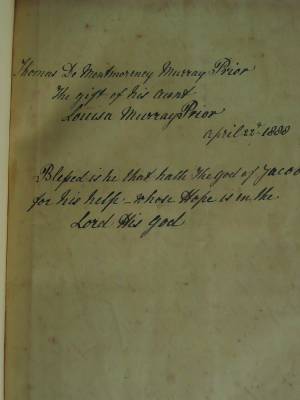 Thomas De Montmorency Murray Prior
The gift of his Aunt
Louisa Murray Prior
April 22d 1888
Blessed is he that hath the God of Jacob
for his help - whose Hope is in the
Lord His God